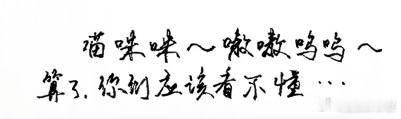 喵咪咪～嗷嗷呜呜～
算了，你到应该看不懂…